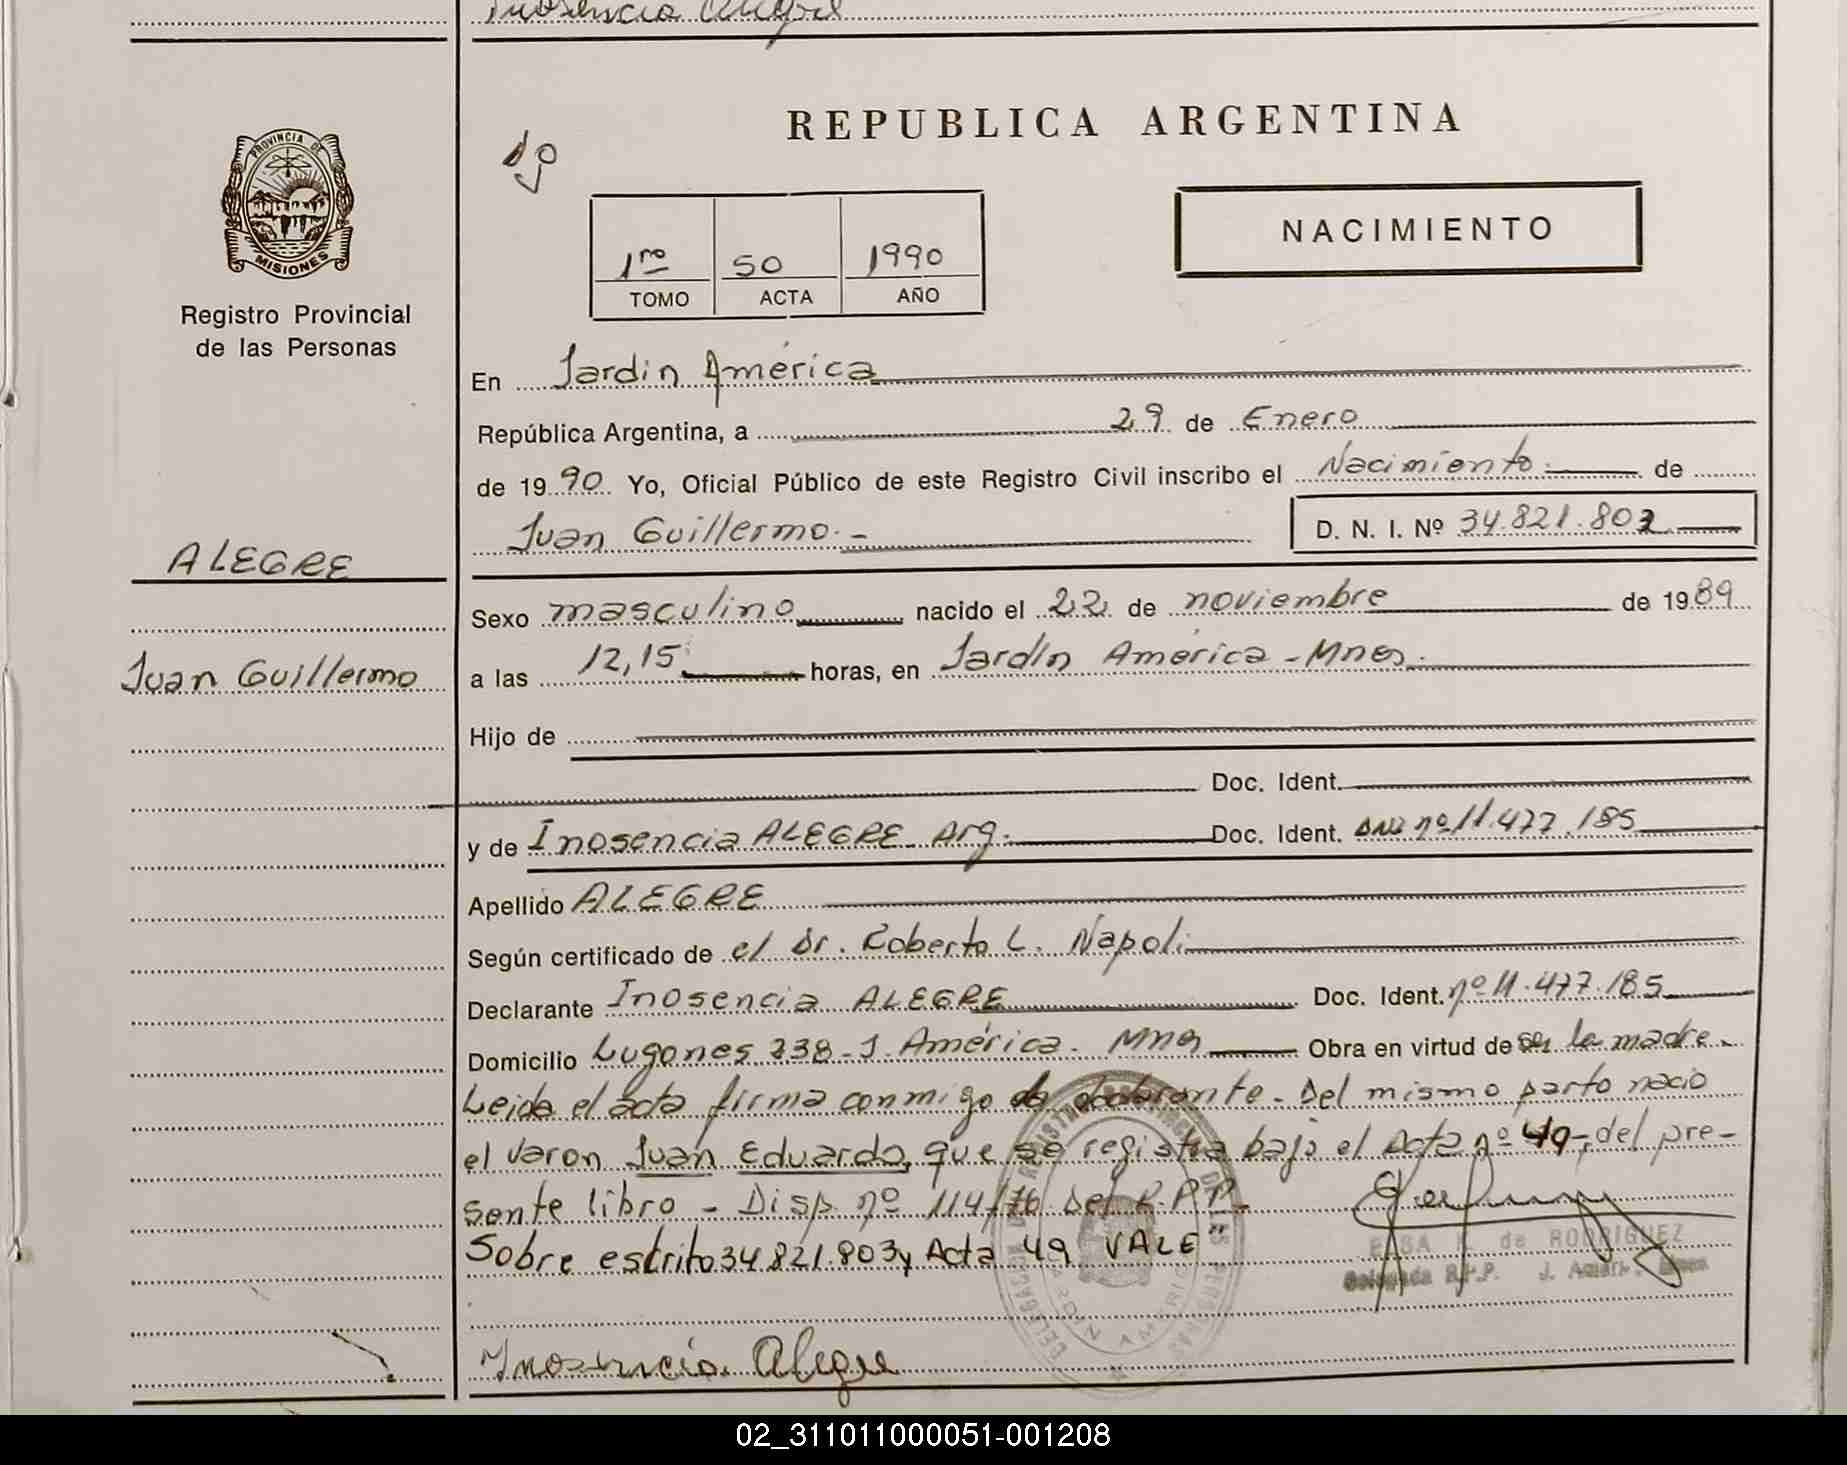 Inosencia Alegre
REPUBLICA ARGENTINA
PROVINCIA DE
MISIONES
Registro Provincial
de las Personas
NACIMIENTO
1ro 50 1990
TOMO ACTA AÑO
En Jardin América
República Argentina, a 29 de Enero
de 1990 Yo, Oficial Público de este Registro Civil inscribo el Nacimiento de
Juan Guillermo.- D. N. I. Nº 34.821.803
ALEGRE
Juan Guillermo
Sexo masculino nacido el 22 de noviembre de 1989
a las 12,15 horas, en Jardín América - Mnes.
Hijo de
Doc. Ident.
y de Inosencia ALEGRE Arg. Doc. Ident. DNI nº 11.477.185
Apellido ALEGRE
Según certificado de el Dr. Roberto L. Napoli
Declarante Inosencia ALEGRE Doc. Ident. nº 11.477.185
Domicilio Lugones 238 - J. América. Mnes Obra en virtud de ser la madre.
Leida el acta firma conmigo la declarante. Del mismo parto nacio
el varon Juan Eduardo, que se registra bajo el Acta nº 49, del pre-
sente libro - Disp. nº 114/76 Del R.P.P.
Sobre escrito 34.821.803 y Acta 49 VALE
ELSA de RODRIGUEZ
Delegada R.P.P. J. Améri.
Inosencia Alegre
02_311011000051-001208